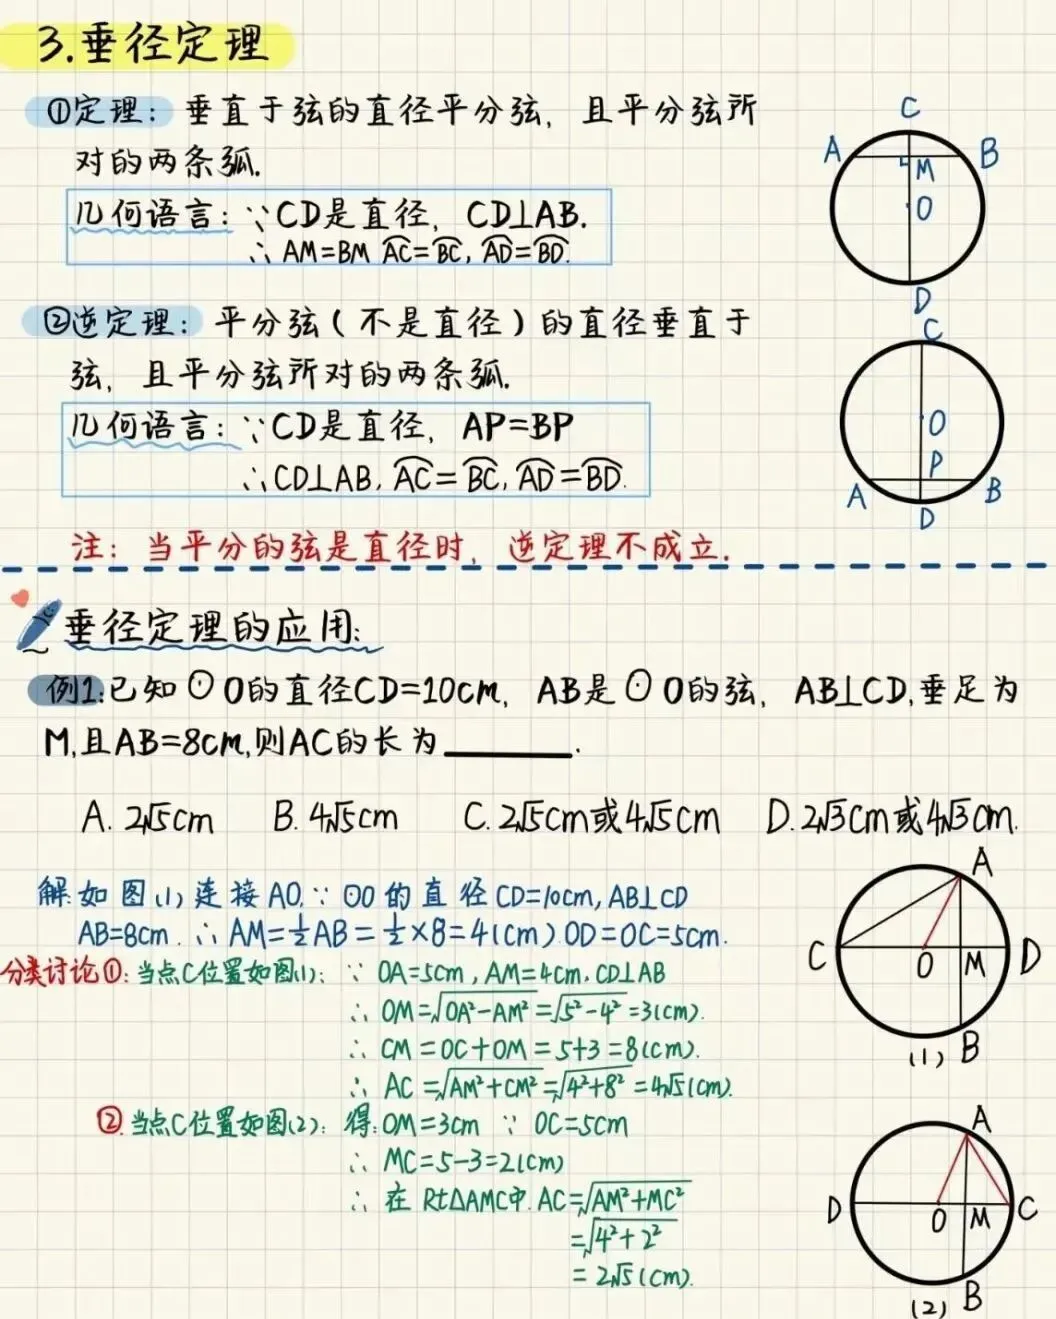 3.垂径定理
①定理：垂直于弦的直径平分弦，且平分弦所
对的两条弧.
几何语言：∵CD是直径，CD⊥AB.
∴ AM=BM A͡C=B͡C, A͡D=B͡D.
C
A
B
M
O
D
②逆定理：平分弦（不是直径）的直径垂直于
弦，且平分弦所对的两条弧.
几何语言：∵CD是直径，AP=BP
∴CD⊥AB, A͡C=B͡C, A͡D=B͡D.
C
O
P
A
B
D
注：当平分的弦是直径时，逆定理不成立.
垂径定理的应用:
例1:已知⊙O的直径CD=10cm，AB是⊙O的弦，AB⊥CD,垂足为
M,且AB=8cm,则AC的长为________.
A. 2√5cm B. 4√5cm C. 2√5cm或4√5cm D. 2√3cm或4√3cm.
解:如图(1)连接AO.∵⊙O的直径CD=10cm,AB⊥CD
AB=8cm.∴AM=½AB=½×8=4(cm)OD=OC=5cm.
分类讨论①:当点C位置如图(1): ∵ OA=5cm,AM=4cm.CD⊥AB
∴ OM=√OA²-AM²=√5²-4²=3(cm).
∴ CM=OC+OM=5+3=8(cm).
∴ AC=√AM²+CM²=√4²+8²=4√5(cm).
A
C
O
M
D
B
(1)
②.当点C位置如图(2): 得:OM=3cm ∵ OC=5cm
∴ MC=5-3=2(cm)
∴ 在Rt△AMC中.AC=√AM²+MC²
=√4²+2²
=2√5(cm).
A
D
O
M
C
B
(2)